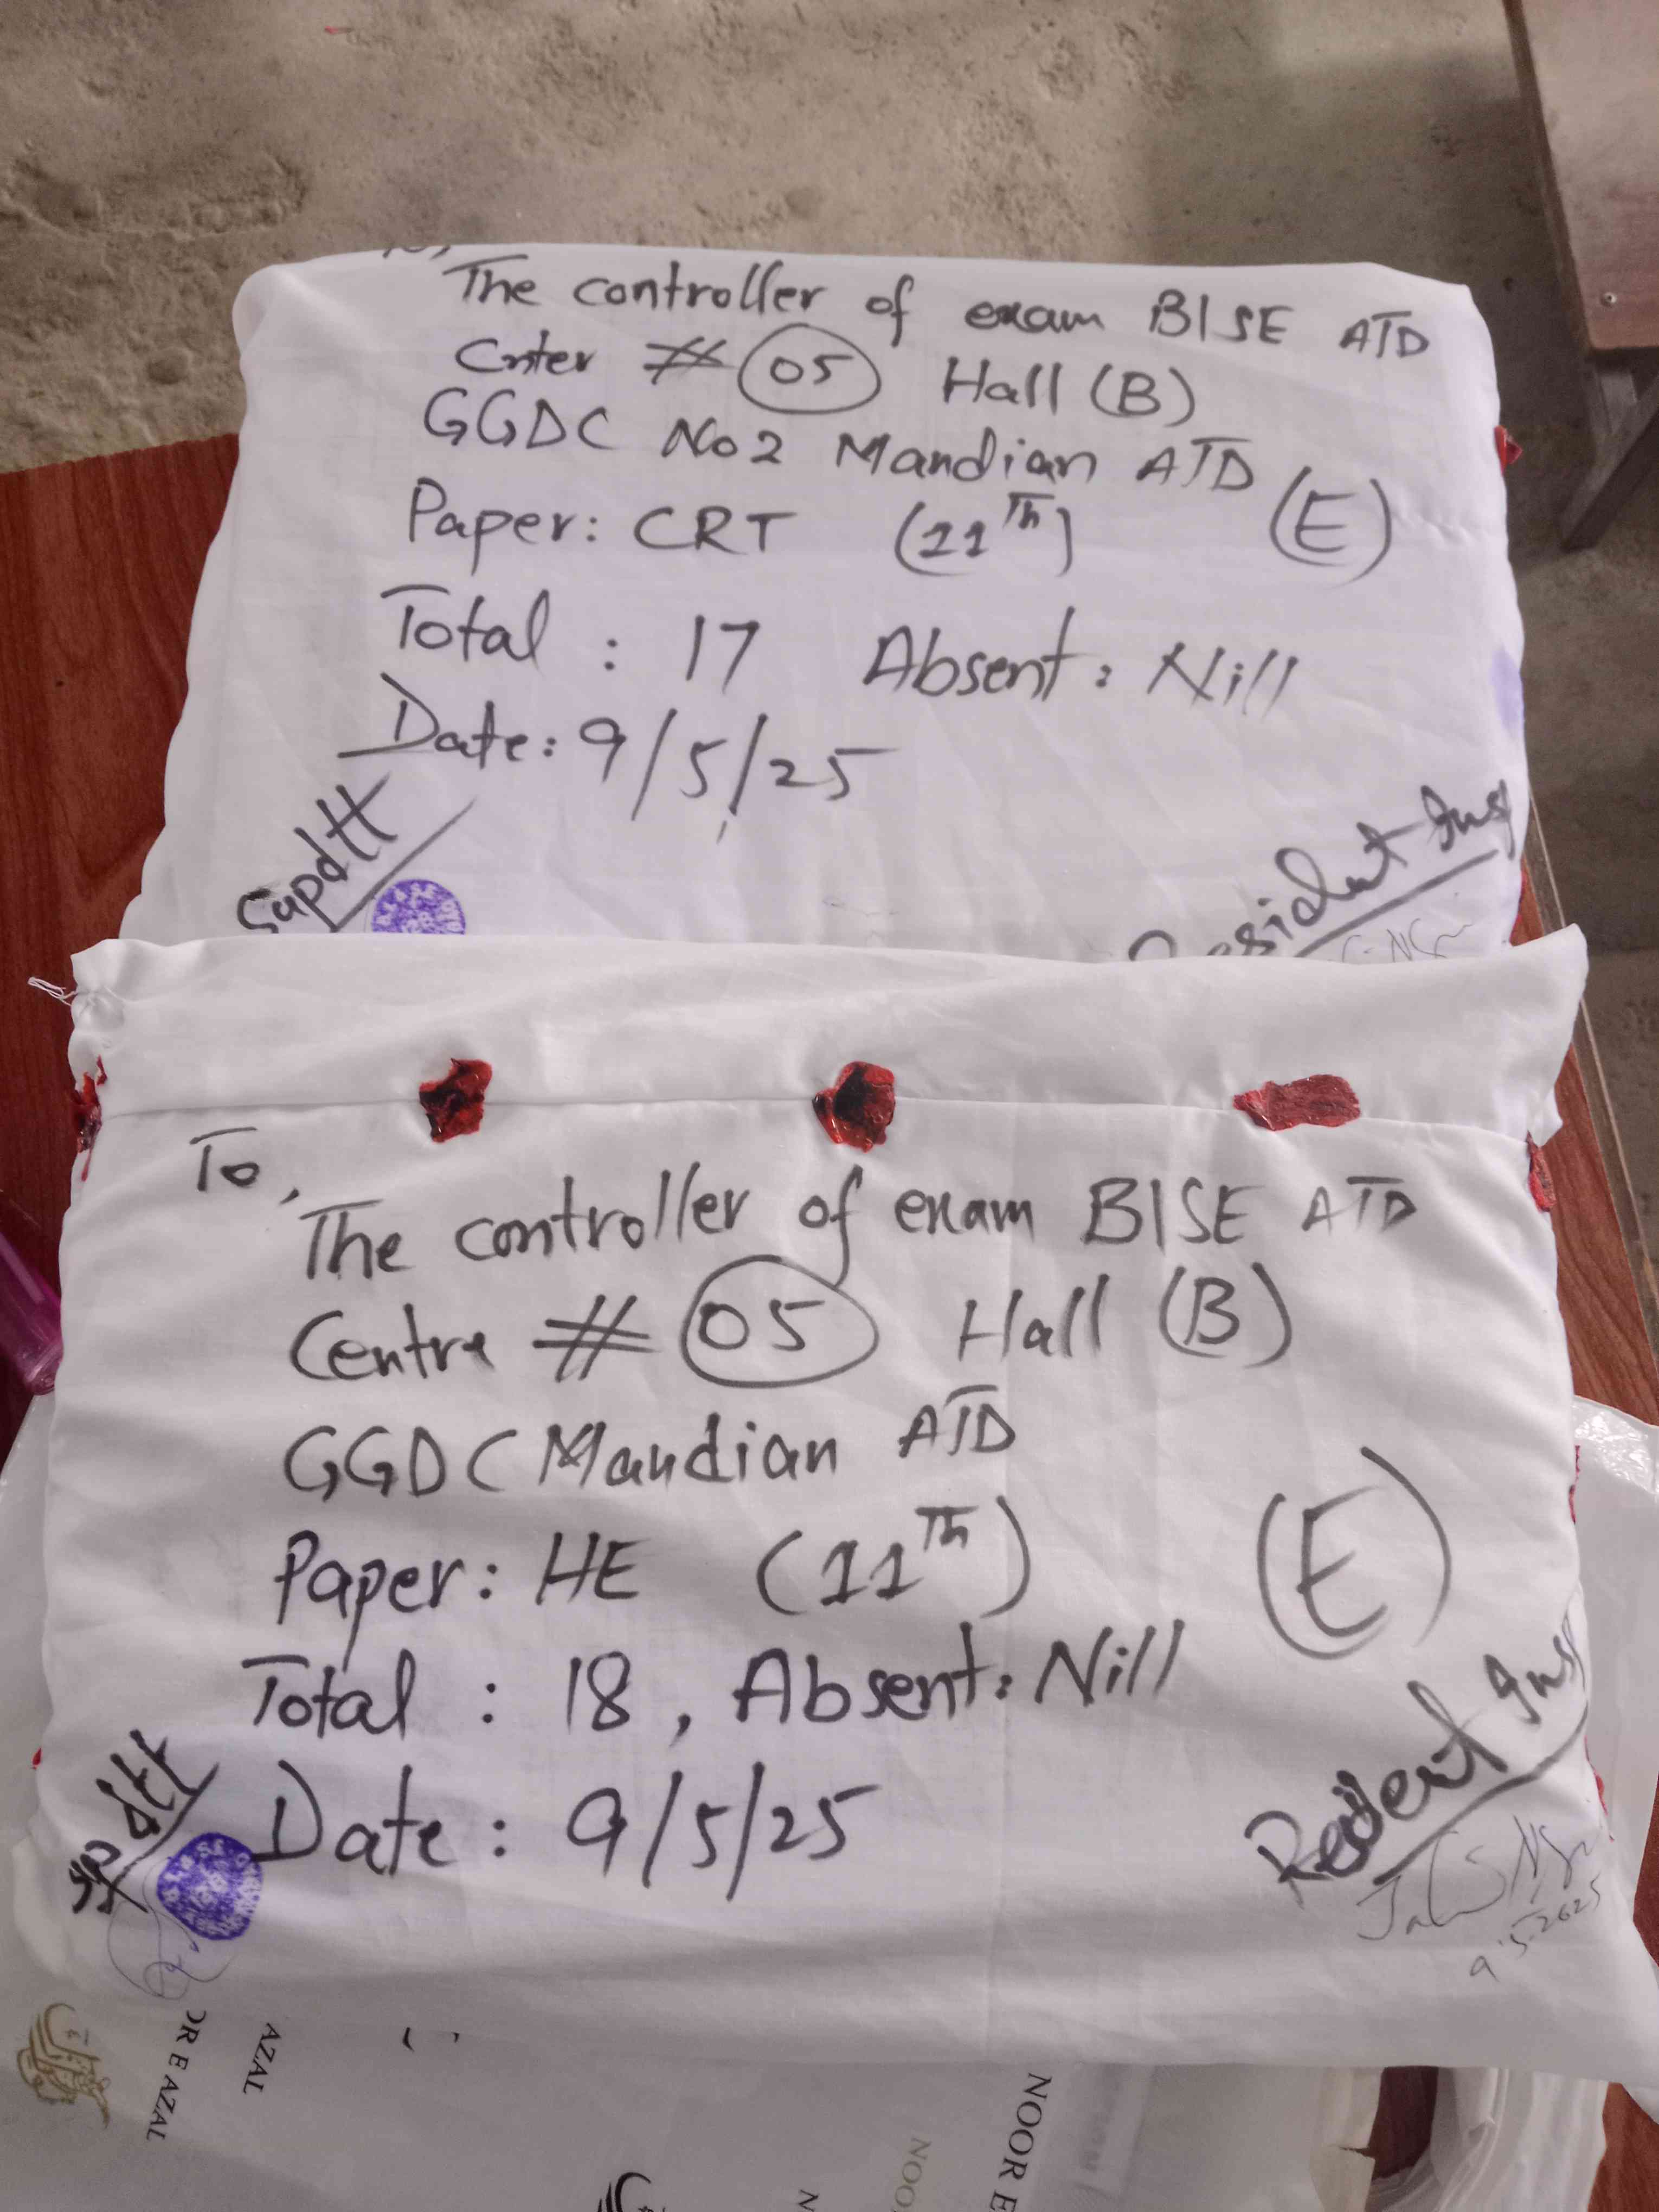 To,
The controller of exam BISE ATD
Cnter # 05 Hall (B)
GGDC No 2 Mandian ATD
Paper: CRT (11Th) (E)
Total : 17 Absent: Nill
Date: 9/5/25
Supdtt
Resident Insp
To,
The controller of exam BISE ATD
Centre # 05 Hall (B)
GGDC Mandian ATD
Paper: HE (11Th) (E)
Total : 18, Absent: Nill
Date: 9/5/25
Supdtt
Resident Insp
9.5.2025
OR E AZAL
AZAL
NOOR E
NOO
N